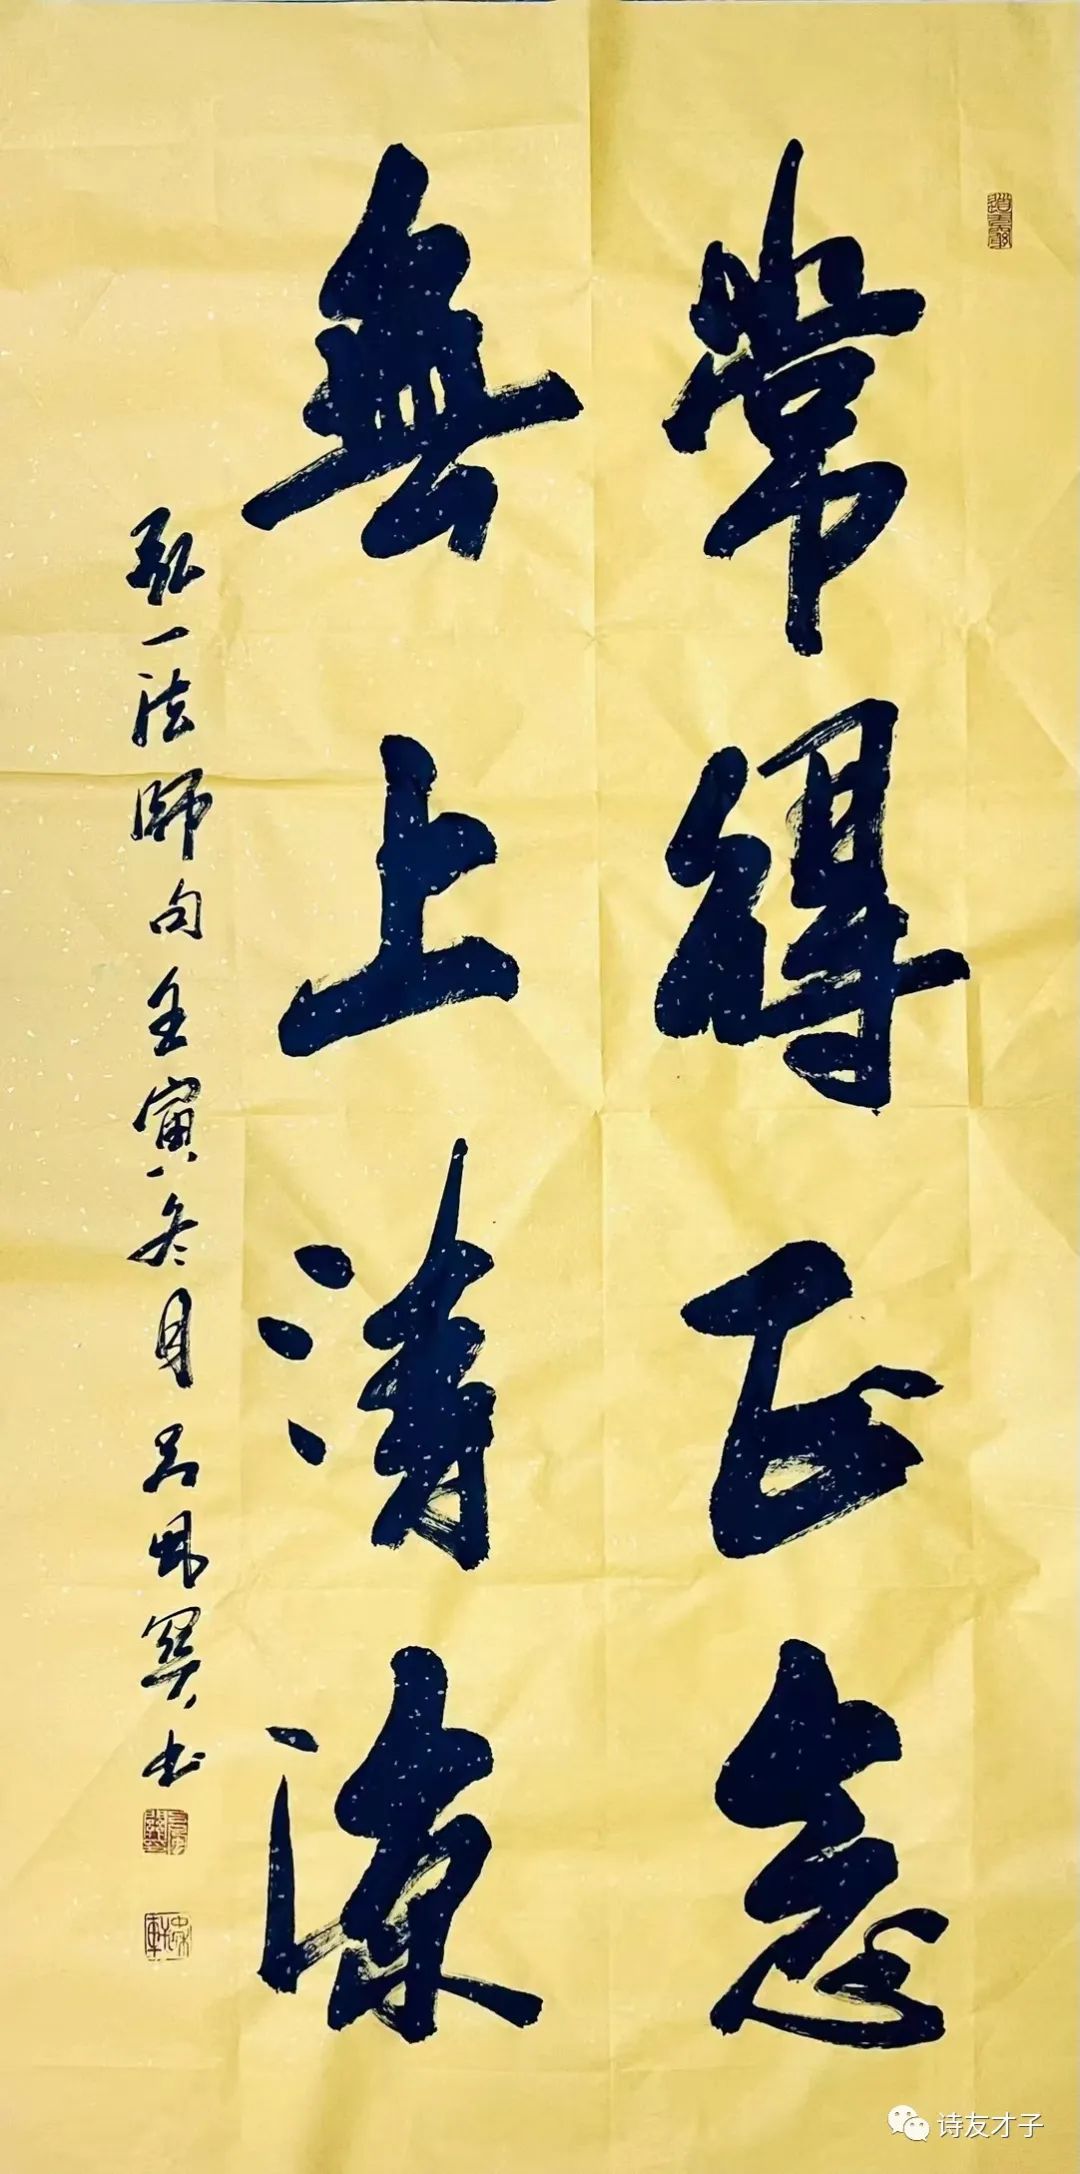 常得正念
無上清涼
弘一法師句壬寅冬月吕風翼书
诗友才子